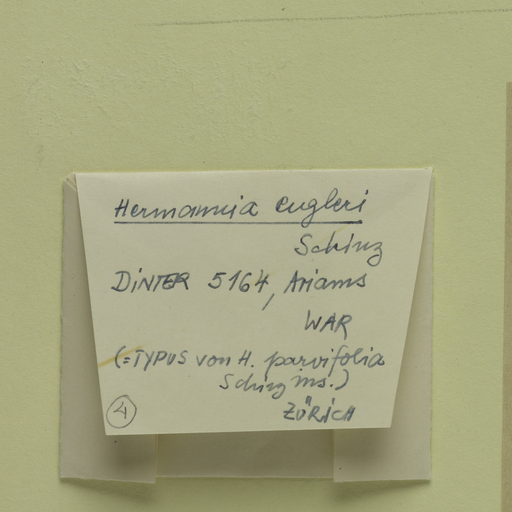 Hermannia engleri
Schinz
DINTER 5164, Ariams
WAR
(=TYPUS von H. parvifolia
Schinz ms.)
ZÜRICH